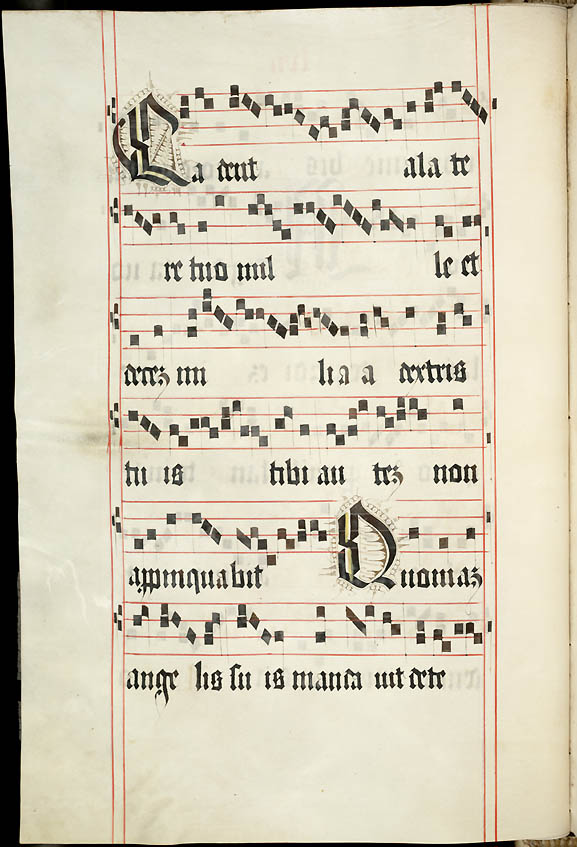 Cadent a la te
re tuo mil le et
decez mi li a a dextris
tu is tibi au tez non
appinquabit Quoniaz
ange lis su is manda uit de te